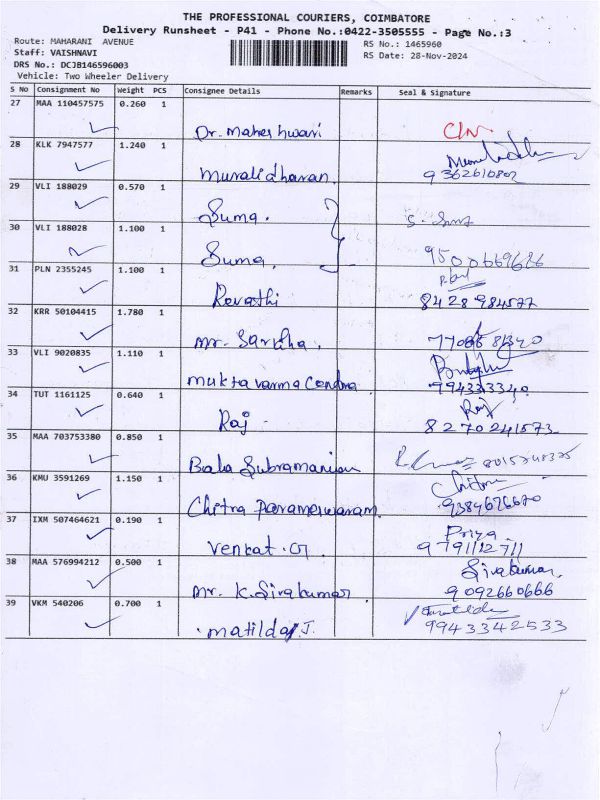 THE PROFESSIONAL COURIERS, COIMBATORE
Delivery Runsheet - P41 - Phone No.:0422-3505555 - Page No.:3
Route: MAHARANI AVENUE
RS No.: 1465960
Staff: VAISHNAVI
RS Date: 28-Nov-2024
DRS No.: DCJB146596003
Vehicle: Two Wheeler Delivery
S No Consignment No Weight PCS Consignee Details Remarks Seal & Signature
27 MAA 110457575 0.260 1
Dr. Maheshwari
28 KLK 7947577 1.240 1
Muralidharan. 9362610802
29 VLI 188029 0.570 1
Suma.
30 VLI 188028 1.100 1
Suma. 9500669686
31 PLN 2355245 1.100 1
Revathi 8428984577
32 KRR 50104415 1.780 1
Mr. Saridha.
33 VLI 9020835 1.110 1
Muktavarma Condra 794333340
34 TUT 1161125 0.640 1 Raj
Raj 8270241573
35 MAA 703753380 0.850 1
Bala Subramanian 8015748375
36 KMU 3591269 1.150 1 Chitra
Chitra Parameswaram 9384676670
37 IXM 507464621 0.190 1 Priya
Venkat. G 9791112711
38 MAA 576994212 0.500 1 Sivakumar,
Mr. K. Sivakumar 9092660666
39 VKM 540206 0.700 1
Matilda J. 9943342533